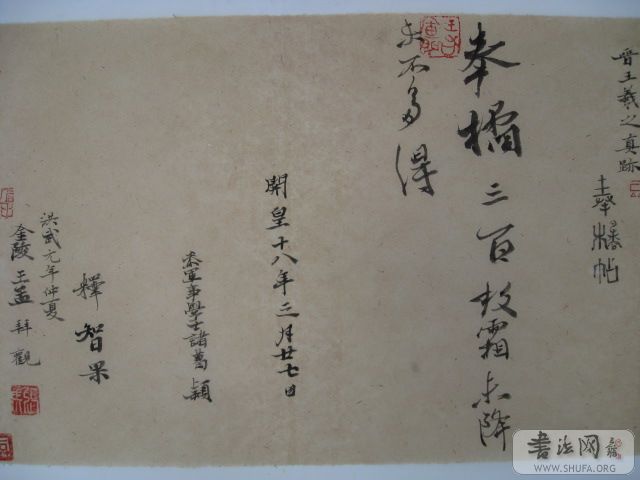 晋王羲之真跡
奉橘帖
奉橘三百枚霜未降
未可多得
開皇十八年三月廿七日
參軍事學士諸葛穎
釋智果
洪武元年仲夏
金陵王孟拜觀
書法网
WWW.SHUFA.ORG